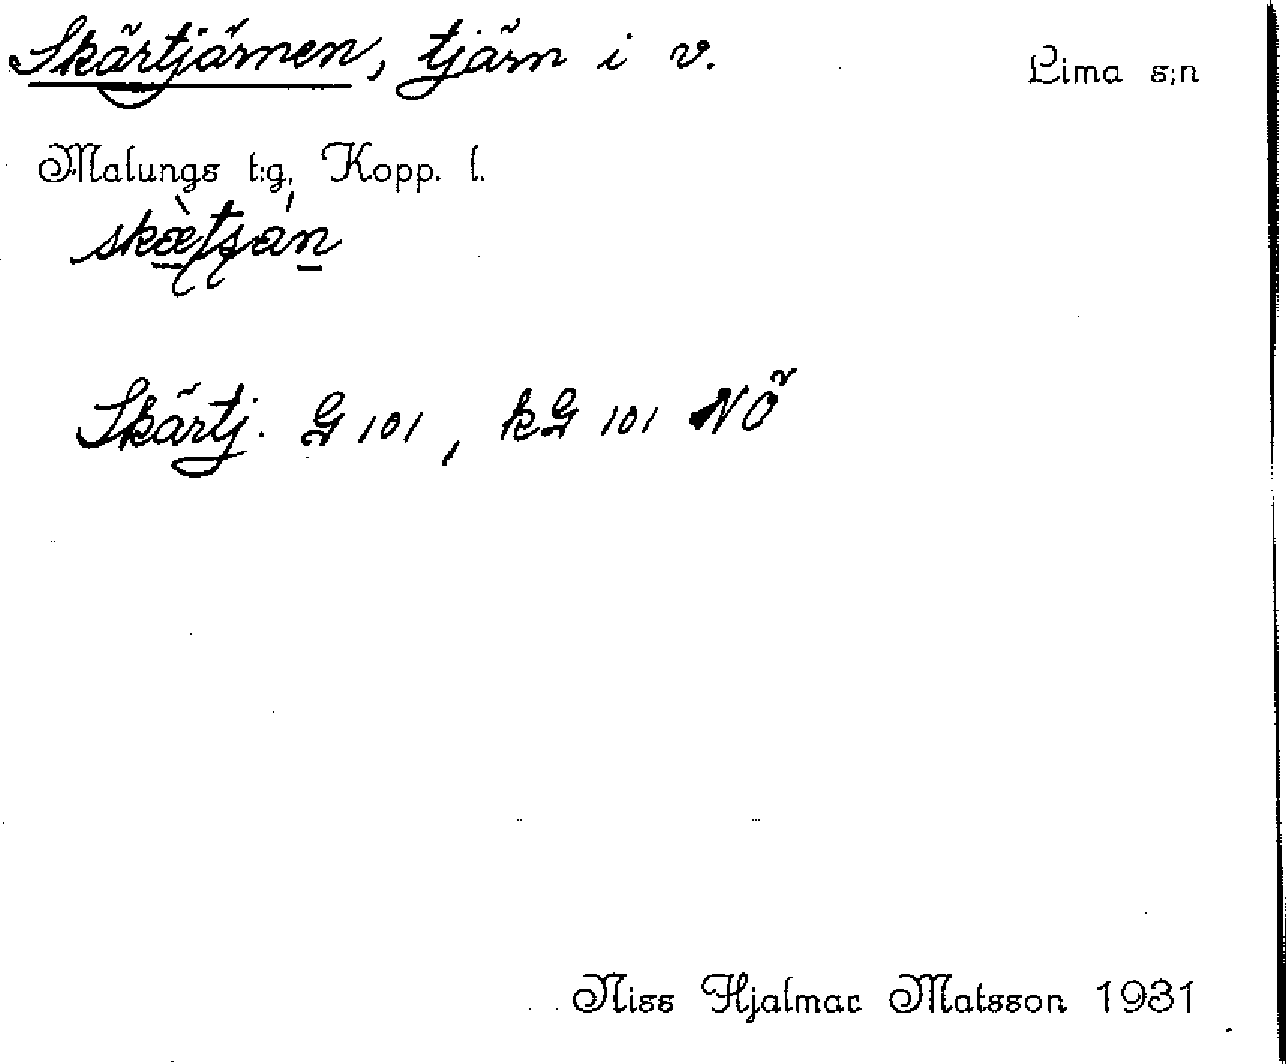 Skärtjärnen, tjärn i v. Lima s:n
Malungs t:g, Kopp. l.
Skärtj. G 101, kG 101 NÖ
Niss Hjalmar Matsson 1931